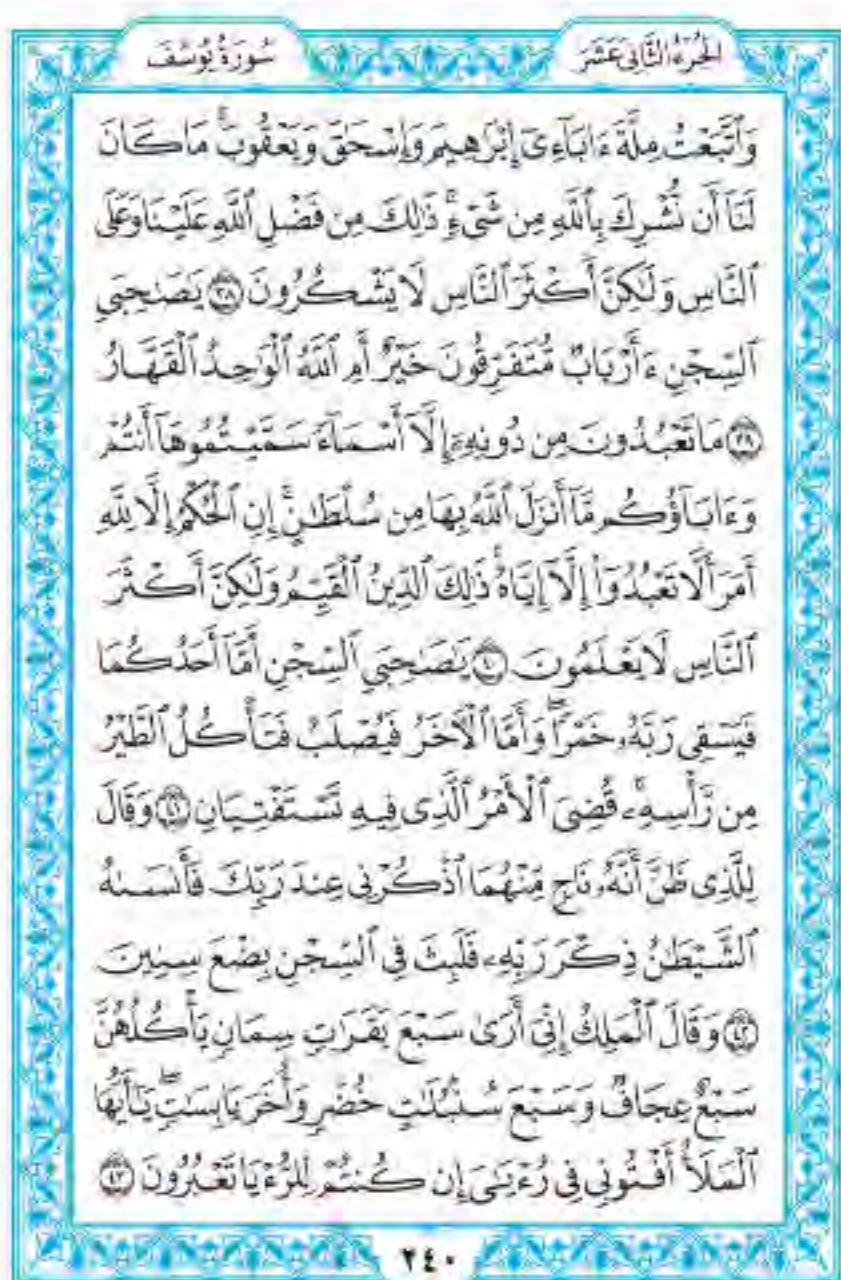 الجزء الثاني عشر
سورة يوسف
وَٱتَّبَعْتُ مِلَّةَ ءَابَآءِىٓ إِبْرَٰهِيمَ وَإِسْحَٰقَ وَيَعْقُوبَۚ مَا كَانَ
لَنَآ أَن نُّشْرِكَ بِٱللَّهِ مِن شَىْءٍۚ ذَٰلِكَ مِن فَضْلِ ٱللَّهِ عَلَيْنَا وَعَلَى
ٱلنَّاسِ وَلَٰكِنَّ أَكْثَرَ ٱلنَّاسِ لَا يَشْكُرُونَ ٣٨ يَٰصَٰحِبَىِ
ٱلسِّجْنِ ءَأَرْبَابٌ مُّتَفَرِّقُونَ خَيْرٌ أَمِ ٱللَّهُ ٱلْوَٰحِدُ ٱلْقَهَّارُ
٣٩ مَا تَعْبُدُونَ مِن دُونِهِۦٓ إِلَّآ أَسْمَآءً سَمَّيْتُمُوهَآ أَنتُمْ
وَءَابَآؤُكُم مَّآ أَنزَلَ ٱللَّهُ بِهَا مِن سُلْطَٰنٍۚ إِنِ ٱلْحُكْمُ إِلَّا لِلَّهِ
أَمَرَ أَلَّا تَعْبُدُوٓا۟ إِلَّآ إِيَّاهُۚ ذَٰلِكَ ٱلدِّينُ ٱلْقَيِّمُ وَلَٰكِنَّ أَكْثَرَ
ٱلنَّاسِ لَا يَعْلَمُونَ ٤٠ يَٰصَٰحِبَىِ ٱلسِّجْنِ أَمَّآ أَحَدُكُمَا
فَيَسْقِى رَبَّهُۥ خَمْرًاۖ وَأَمَّا ٱلْءَاخَرُ فَيُصْلَبُ فَتَأْكُلُ ٱلطَّيْرُ
مِن رَّأْسِهِۦۚ قُضِىَ ٱلْأَمْرُ ٱلَّذِى فِيهِ تَسْتَفْتِيَانِ ٤١ وَقَالَ
لِلَّذِى ظَنَّ أَنَّهُۥ نَاجٍ مِّنْهُمَا ٱذْكُرْنِى عِندَ رَبِّكَ فَأَنسَىٰهُ
ٱلشَّيْطَٰنُ ذِكْرَ رَبِّهِۦ فَلَبِثَ فِى ٱلسِّجْنِ بِضْعَ سِنِينَ
٤٢ وَقَالَ ٱلْمَلِكُ إِنِّىٓ أَرَىٰ سَبْعَ بَقَرَٰتٍ سِمَانٍ يَأْكُلُهُنَّ
سَبْعٌ عِجَافٌ وَسَبْعَ سُنۢبُلَٰتٍ خُضْرٍ وَأُخَرَ يَابِسَٰتٍۖ يَٰٓأَيُّهَا
ٱلْمَلَأُ أَفْتُونِى فِى رُءْيَٰىَ إِن كُنتُمْ لِلرُّءْيَا تَعْبُرُونَ ٤٣
٢٤٠